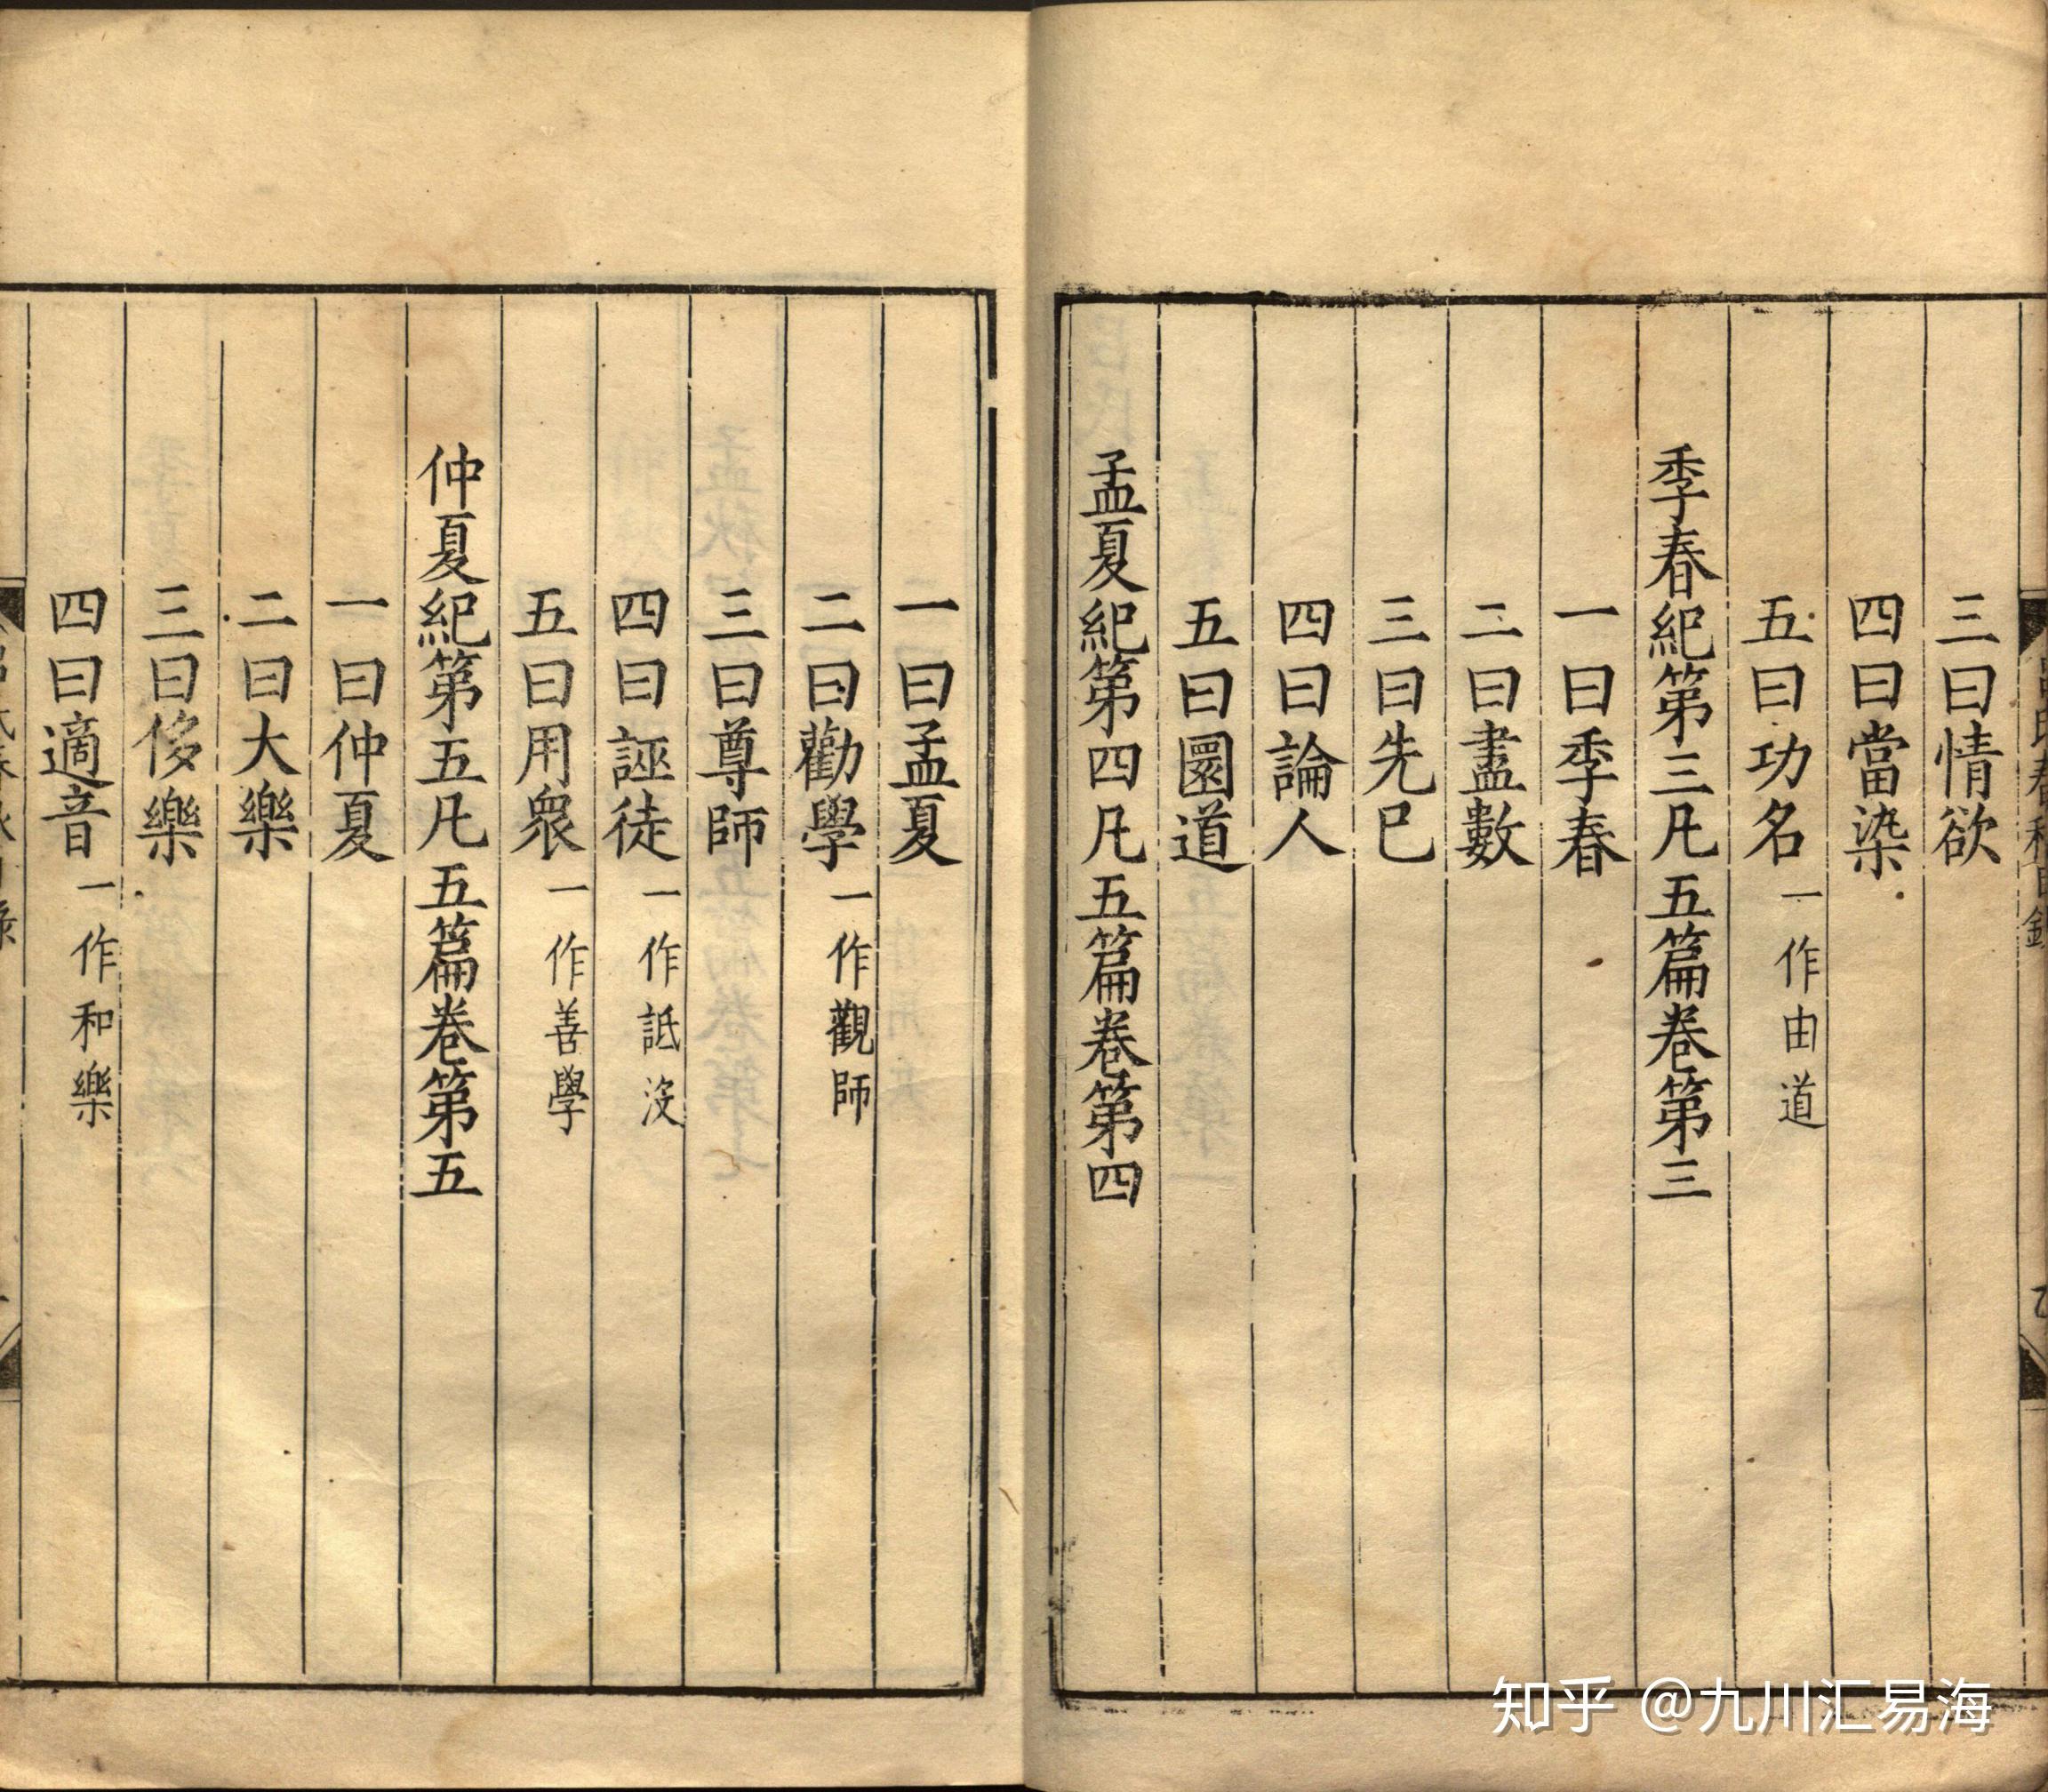 三曰情欲
四曰當染
五曰功名一作由道
季春紀第三凡五篇卷第三
一曰季春
二曰盡數
三曰先己
四曰論人
五曰圜道
孟夏紀第四凡五篇卷第四
一曰孟夏
二曰勸學一作觀師
三曰尊師
四曰誣徒一作詆沒
五曰用衆一作善學
仲夏紀第五凡五篇卷第五
一曰仲夏
二曰大樂
三曰侈樂
四曰適音一作和樂
知乎 @九川汇易海